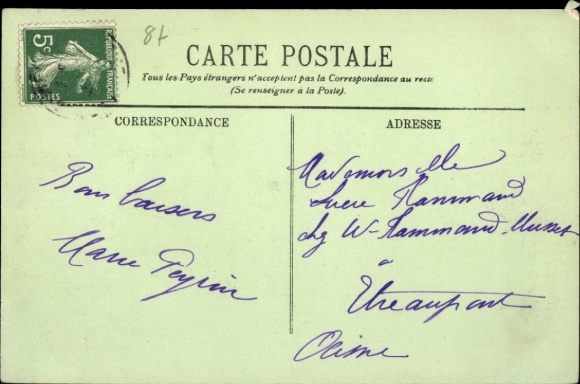 5c
REPUBLIQUE FRANÇAISE
POSTES
84
CARTE POSTALE
Tous les Pays étrangers n'acceptent pas la Correspondance au recto
(Se renseigner à la Poste).
CORRESPONDANCE
ADRESSE
Bons baisers
Marie Peyrin
Mademoiselle
Lucie Flammand
chz Flammand-Musset
à
Etreaupont
Aisne